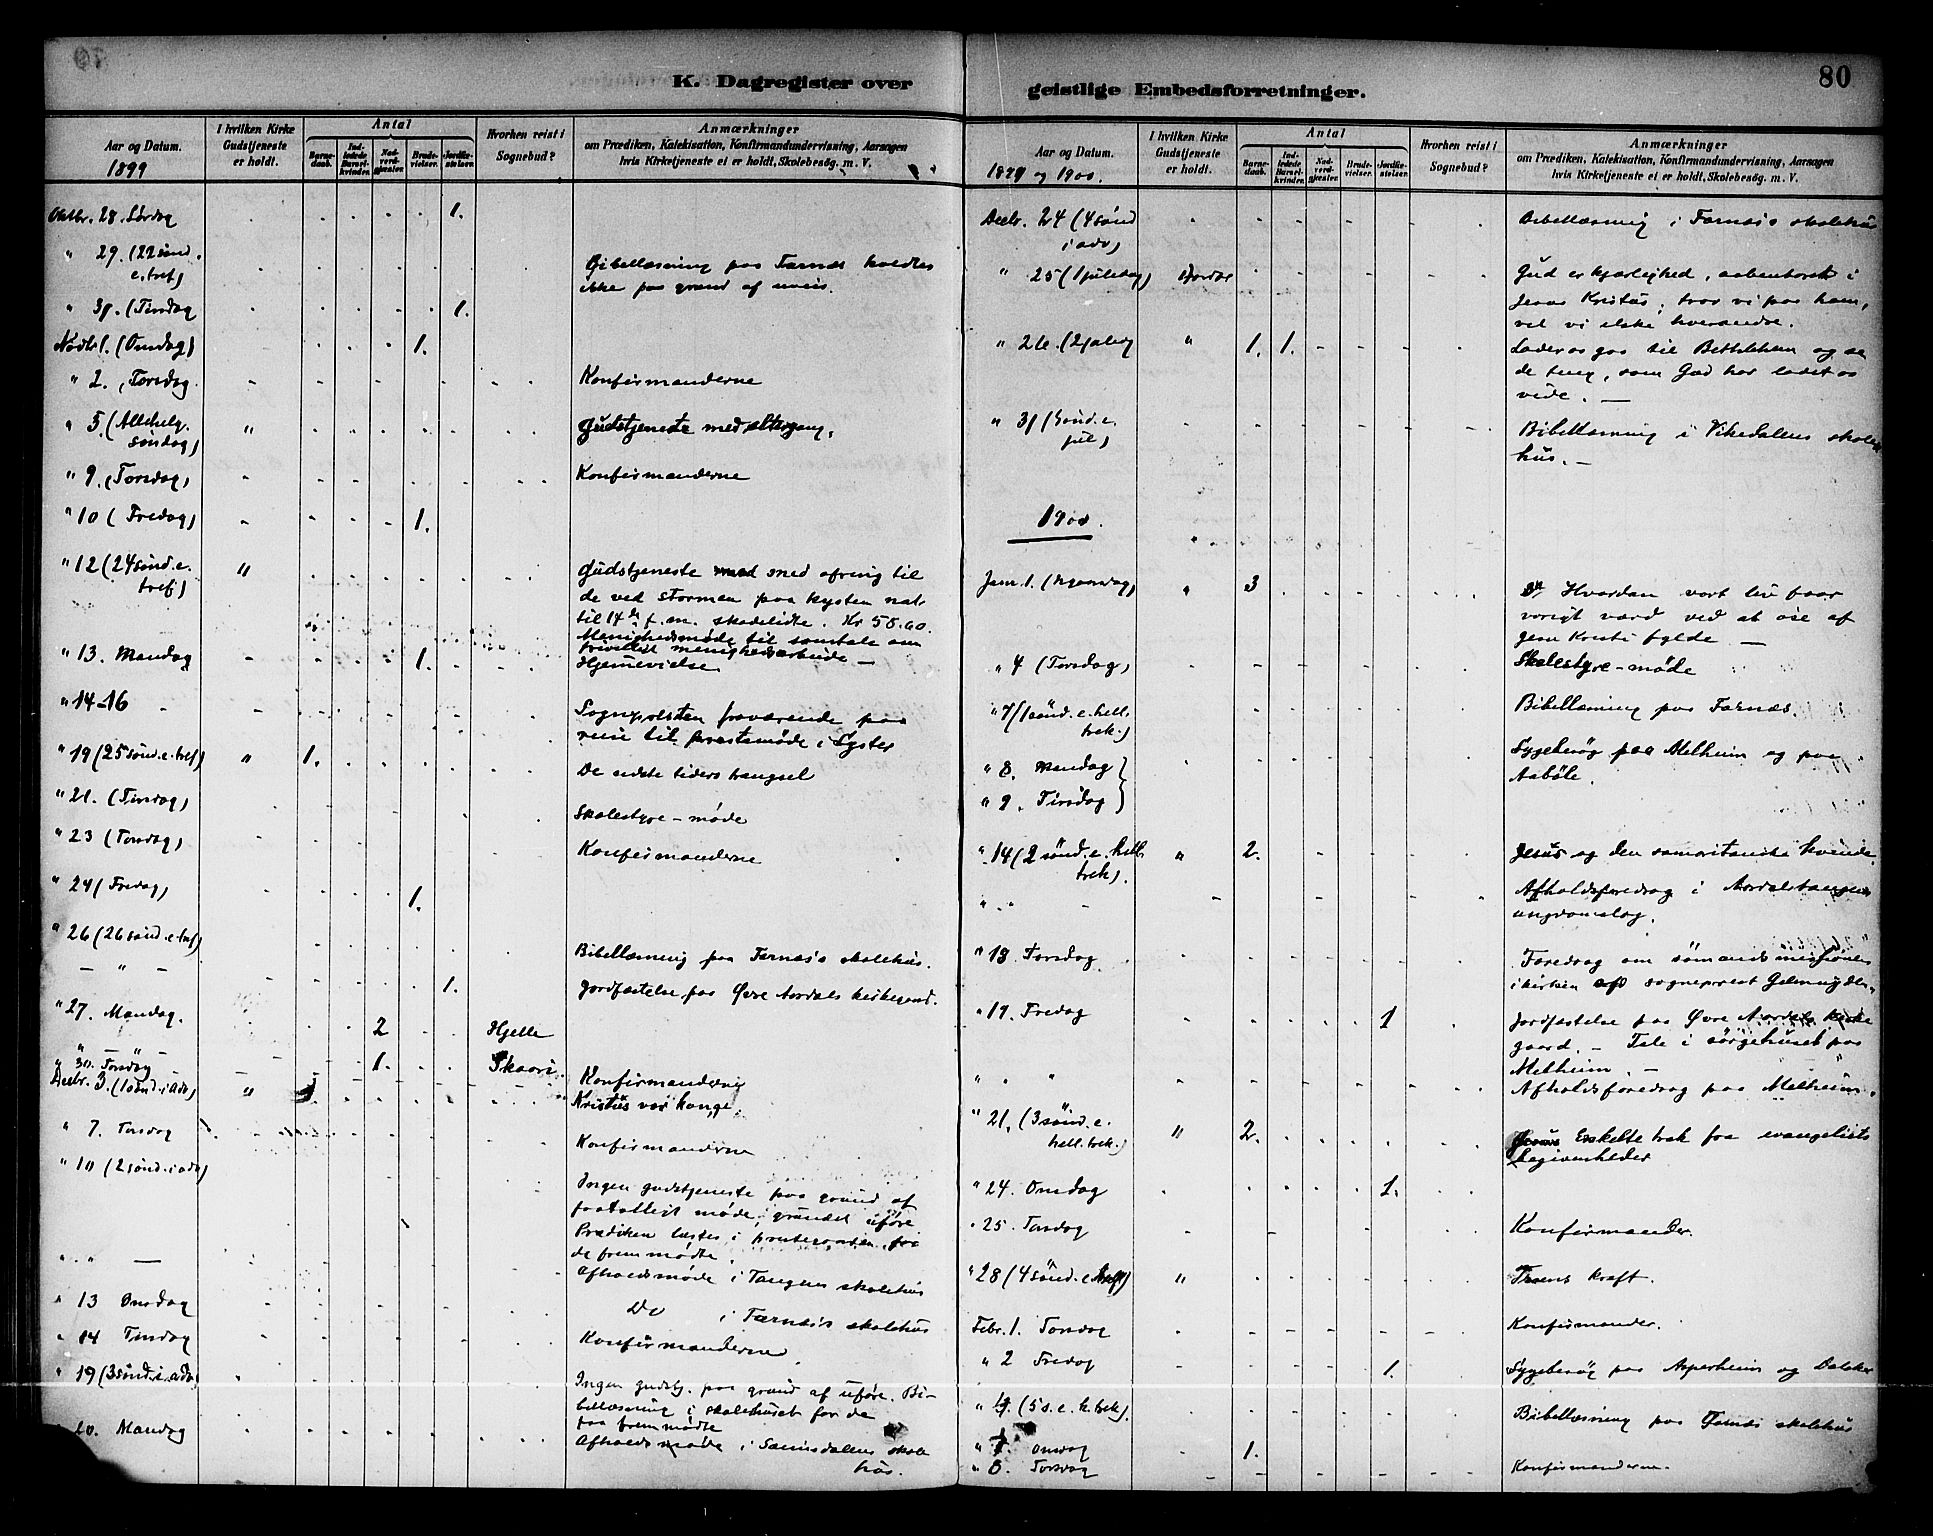 K. Dagregister over
Aar og Datum.
1899
I hvilken Kirke Gudstjeneste er holdt.
Antal
Barnedaab.
Indledede Barselkvinder.
Nadverdgjæster.
Brudevielser.
Jordfæstelser.
Hvorhen reist i Sognebud?
Anmærkninger
om Prædiken, Katekisation, Konfirmandundervisning, Aarsagen
hvis Kirketjeneste ei er holdt, Skolebesøg. m. V.
Oktbr. 28. Lørdag 1.
" 29. (22 sønd. e. tref) Bibellæsning paa Farnæs holdtes
ikke paa grund af uveir.
" 31. (Tirsdag 1.
Novbr 1. (Onsdag) 1.
" 2. (Torsdag. Konfirmanderne
" 5 (Allehelg. søndag) " Gudstjeneste med altergang.
" 9. (Torsdag) Konfirmanderne
" 10 (Fredag) 1.
" 12 (24 sønd. e. tref) " Gudstjeneste med ofring til
de ved stormen paa kysten nat
til 14de f. m. skadelidte. Kr 58.60.
Menighedsmøde til samtale om
frivilligt menighedsarbeide —
" 13. Mandag 1. Hjemmevielse
" 14-16 Sognepresten fraværende paa
reise til prestemøde i Lyster
" 19 (25 sønd. e. tref) " 1. De sidste tiders trængsel
" 21. (Tirsdag) Skolestyre-møde
" 23 (Torsdag) Konfirmanderne
" 24 (Fredag) 1.
" 26 (26 sønd. e. tref) Bibellæsning paa Farnæs's skolehus.
— " — 1. Jordfæstelse paa Øvre Aardals kirkegaard.
" 27. Mandag. 2 Hjelle
" 30. Torsdag 1. Skaari. Konfirmanderne
Decbr. 3. (1 sønd. i adv) " Kristus vor konge.
" 7. Torsdag Konfirmanderne
" 10 (2 sønd. i adv) Ingen gudstjeneste paa grund af
faatalligt møde, grundet uføre
Prædiken læstes i prestegaarden for
de fremmødte.
" " — Afholdsmøde i Tangens skolehus
" 13 Onsdag Do i Farnæs's skolehus
" 14 Torsdag Konfirmanderne
" 19 (3 sønd. i adv) Ingen gudstj. paa grund af uføre. Bi-
bellæsning i skolehuset for de
faa fremmødte
20. Mandag Afholdsmøde i Seimsdalens skole
hus.
geistlige Embedsforretninger.
80
Aar og Datum.
1899 og 1900.
I hvilken Kirke Gudstjeneste er holdt.
Antal
Barnedaab.
Indledede Barselkvinder.
Nadverdgjæster.
Brudevielser.
Jordfæstelser.
Hvorhen reist i Sognebud?
Anmærkninger
om Prædiken, Katekisation, Konfirmandundervisning, Aarsagen
hvis Kirketjeneste ei er holdt, Skolebesøg. m. V.
Decbr. 24 (4 sønd i adv) Bibellæsning i Farnæs's skolehus
" 25 (1 juledag) Aardal Gud er kjærlighed, aabenbaret i
Jesus Kristus; tror vi paa ham,
vil vi elske hverandre.
" 26. (2 juledag " 1. 1. Lader os gaa til Bethlehem og se
de ting, som Gud har ladet os
vide. —
" 31 (Sønd. e. jul) Bibellæsning i Vikedalens skole
hus. —
1900.
Janr. 1. (Nyaarsdag) " 3 Hvordan vort liv faar
varigt værd ved at øse af
Jesu Kristi fylde —
" 4 (Torsdag) Skolestyre-møde
" 7 (1 sønd. e. hell. trek.) Bibellæsning paa Farnæs.
" 8. Mandag } Sygebesøg paa Melheim og paa
" 9. Tirsdag } Aabøle.
" 14 (2 sønd. e. hell. trek). " 2. Jesus og den samaritanske kvinde
" " - Afholdsforedrag i Aardalstangens
ungdomslag.
" 18 Torsdag Foredrag om sømandsmissionen
i kirken af sogneprest
" 19. Fredag 1 Jordfæstelse paa Øvre Aardals kirke
gaard. — Tale i sørgehuset paa
Melheim. —
" " " Afholdsforedrag paa Melheim.
" 21. (3 sønd. e. hell. trek.) " 2. Enkelte træk fra evangeliets
begivenheder
" 24. Onsdag 1.
" 25. Torsdag Konfirmander.
" 28 (4 sønd. e. " Troens kraft.
Febr. 1. Torsdag Konfirmander.
" 2 Fredag 1. Sygebesøg paa Asperheim og
" 4 (5 s. e. h. trek). Bibellæsning paa Farnæs skolehus
" 7. Onsdag 1.
" 8. Torsdag Konfirmanderne.